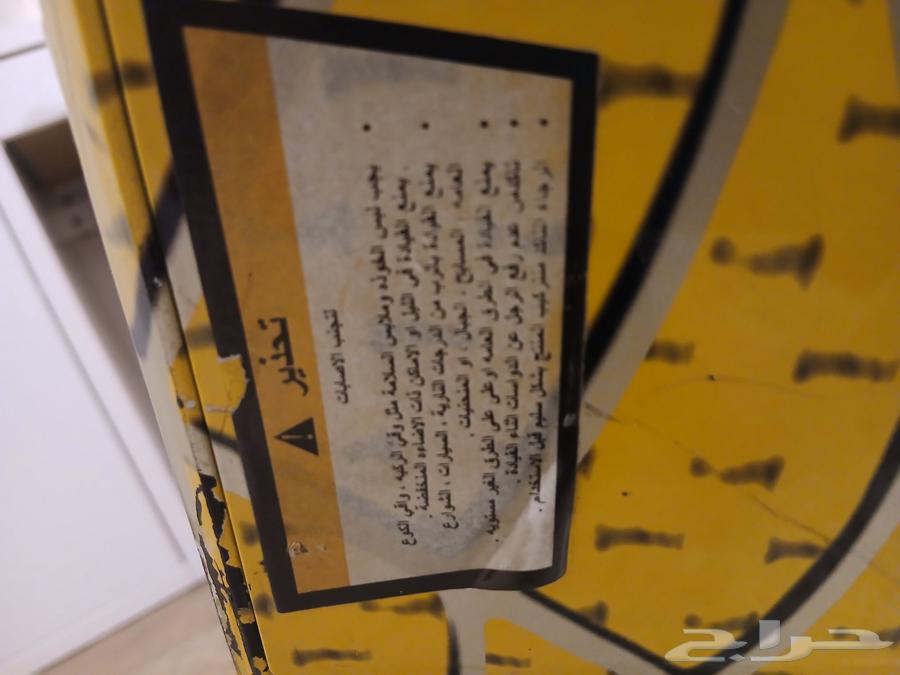 تحذير
لتجنب الاصابات
يجب لبس الخوذه وملابس السلامة مثل وقي الركبه ، واقي الكوع
يمنع القيادة في الليل او الاماكن ذات الاضاءه المنخفضة .
يمنع القيادة بالقرب من الدرجات النارية ، السيارات ، الشوارع
العامه ، المسابح ، الجبال ، او المنحنيات .
يمنع القيادة في الطرق العامه او على الطرق الغير مستويه .
تأكد من عدم رفع الرجل عن الدواسات اثناء القيادة .
الرجاء التأكد من تركيب المنتج بشكل سليم قبل الاستخدام .
حراج